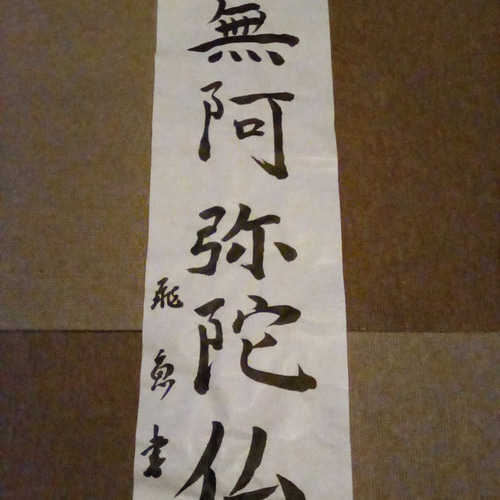 無阿弥陀仏
飛魚書